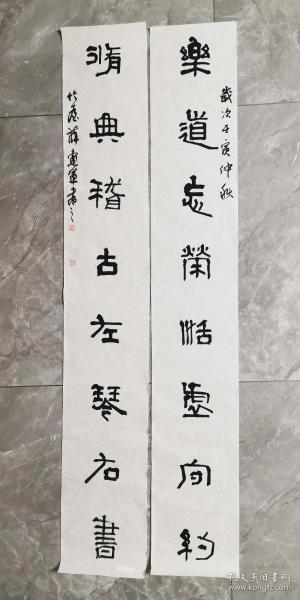 樂道忘榮恬虛向約
歲次壬寅仲秋
脩典稽古左琴右書
薛憲軍書之
孔夫子旧书网